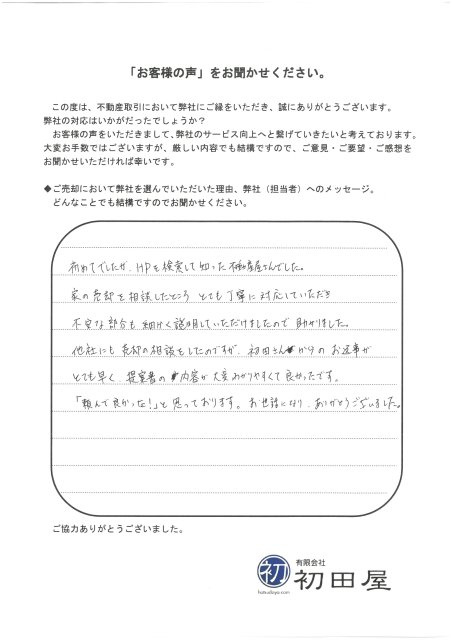 「お客様の声」をお聞かせください。
この度は、不動産取引において弊社にご縁をいただき、誠にありがとうございます。
弊社の対応はいかがだったでしょうか？
お客様の声をいただきまして、弊社のサービス向上へと繋げていきたいと考えております。
大変お手数ではございますが、厳しい内容でも結構ですので、ご意見・ご要望・ご感想を
お聞かせいただければ幸いです。
◆ご売却において弊社を選んでいただいた理由、弊社（担当者）へのメッセージ。
どんなことでも結構ですのでお聞かせください。
初めてでしたが、HPを検索して知った不動産屋さんでした。
家の売却を相談したところ とても丁寧に対応していただき
不安な部分も細かく説明していただけましたので 助かりました。
他社にも売却の相談をしたのですが、初田さんからのお返事が
とても早く 提案書の内容が大変わかりやすくて良かったです。
「頼んで良かったな！」と思っております。お世話になり、ありがとうございました。
ご協力ありがとうございました。
初
hatsudaya.com
有限会社
初田屋